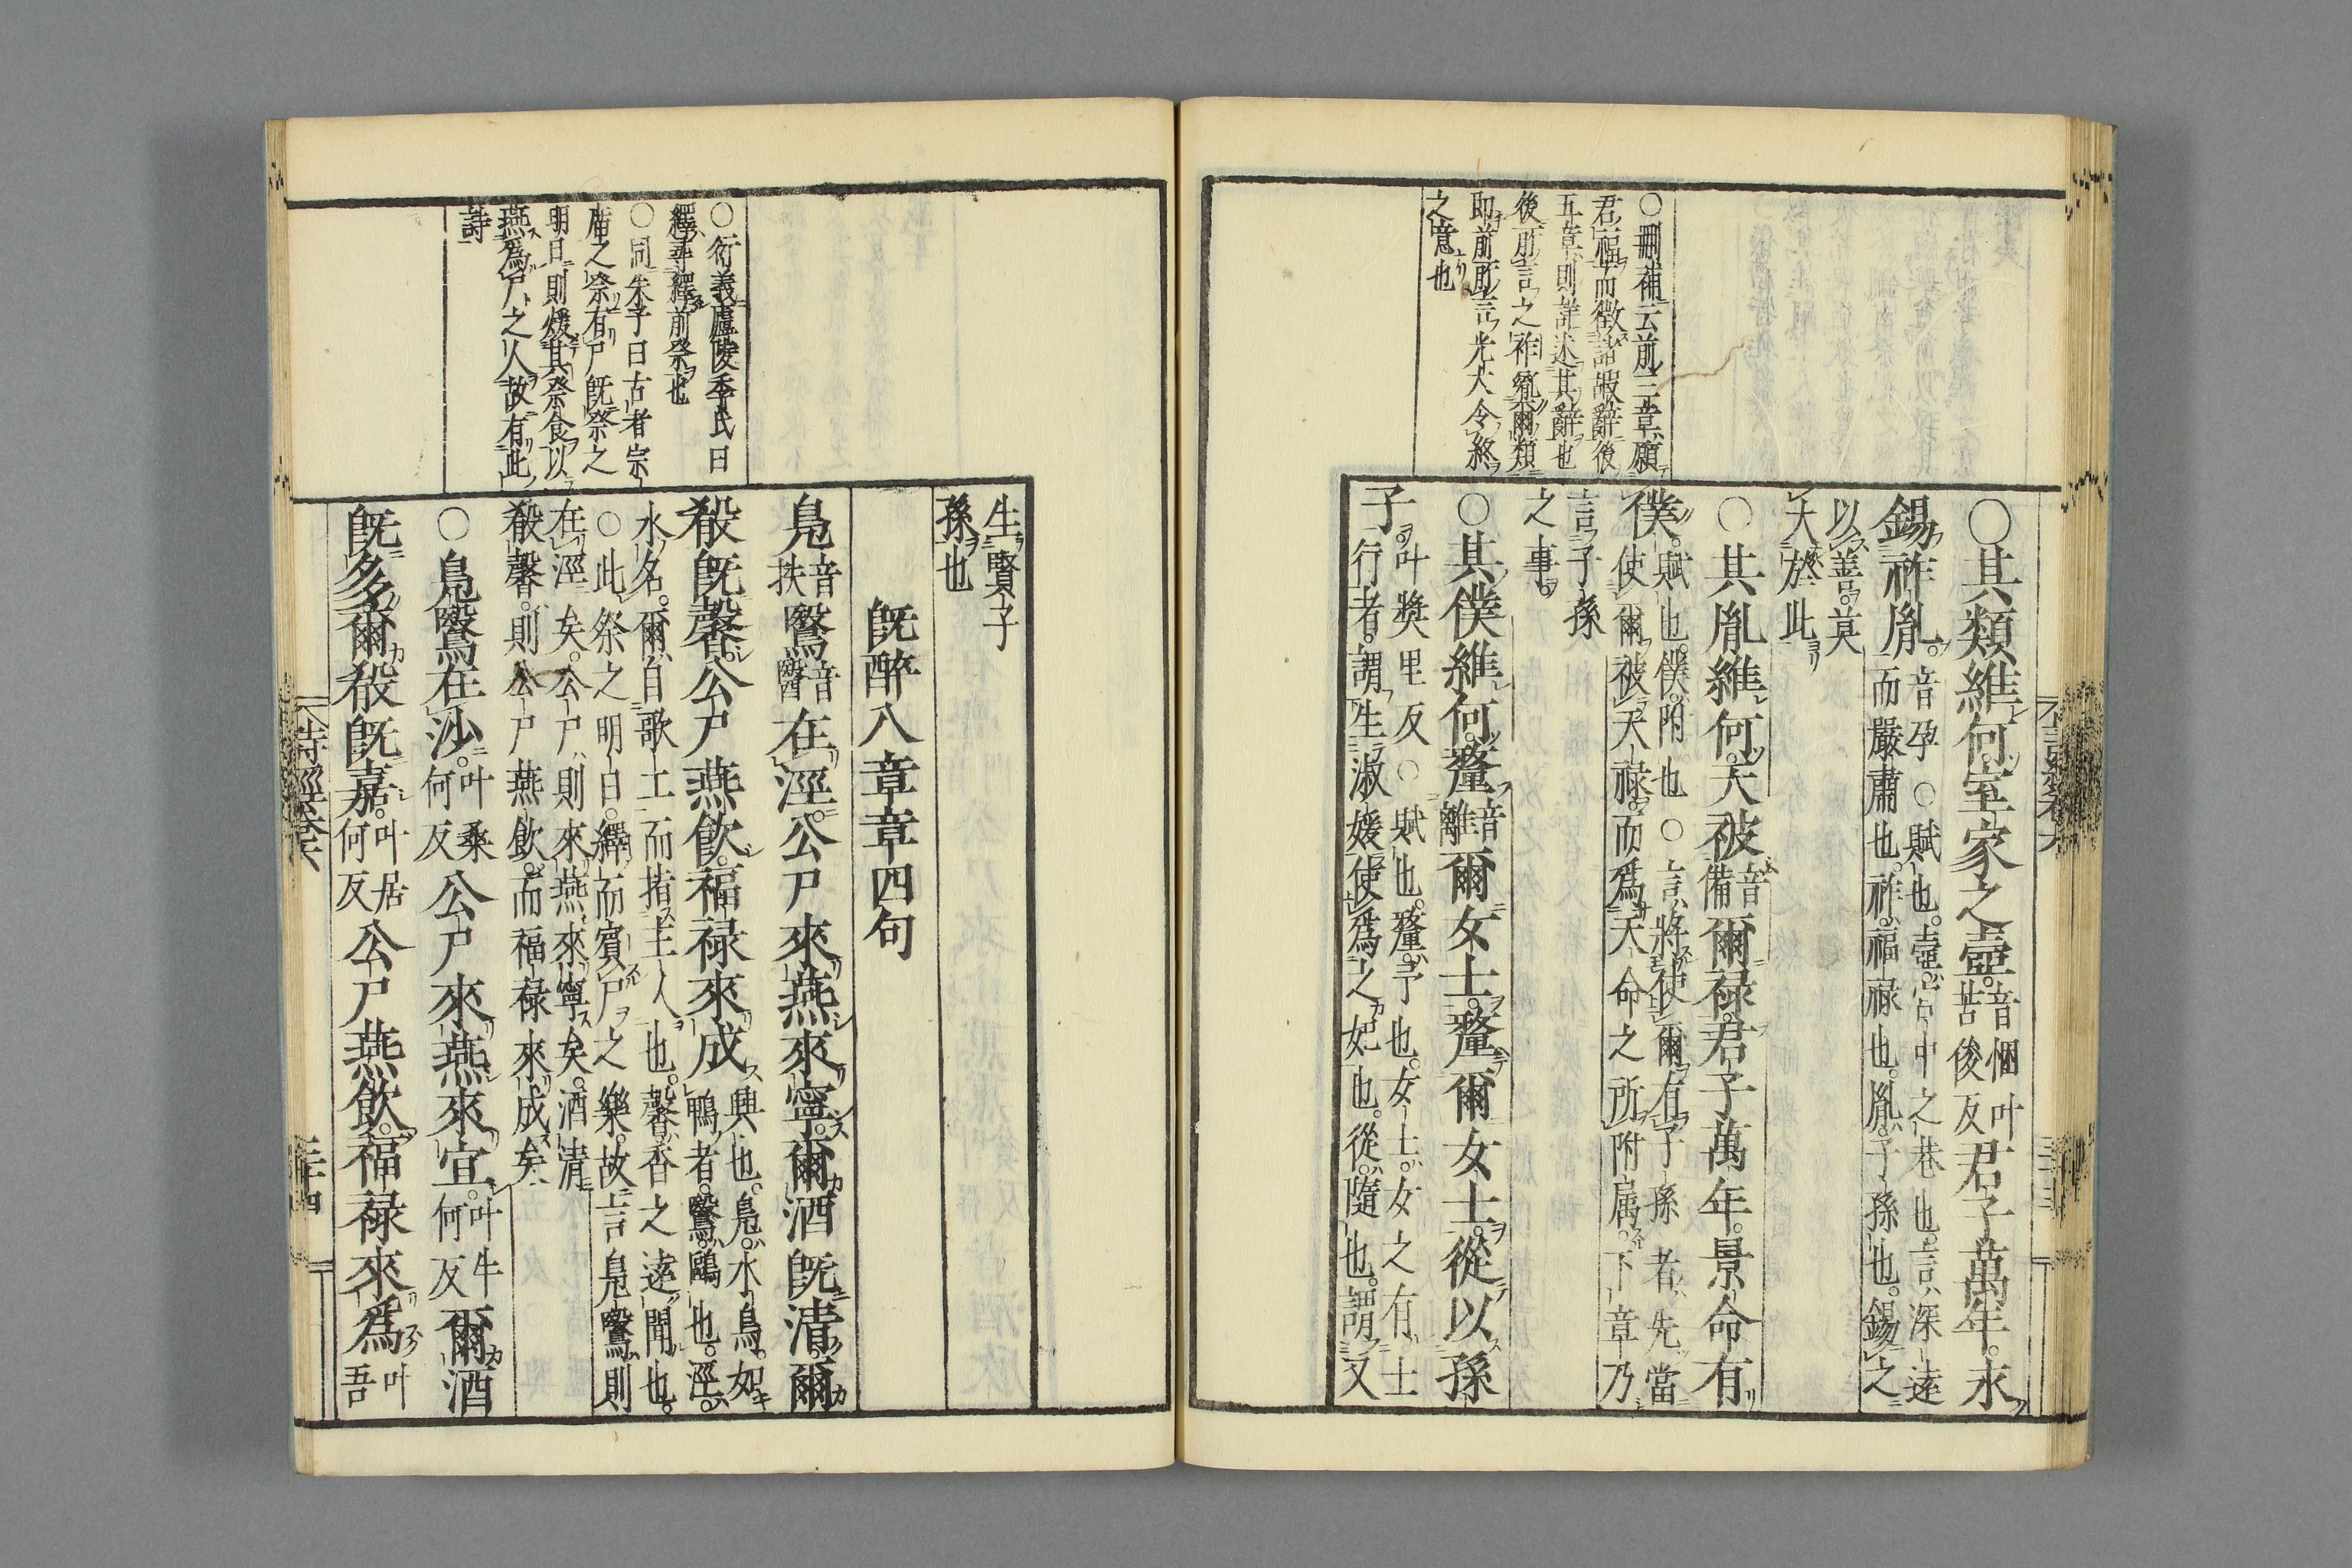 ○刪補云前三章願
君福而徵諸嘏辭後
五章則詳述其辭也
後所言之祚胤爾類
即前所言光大令終
之意也
○其類維何室家之壼音悃叶苦俊反君子萬年永
錫祚胤音孕○賦也壼宮中之巷也言深遠而嚴肅也祚福祿也胤子孫也錫之
以善莫大於此
○其胤維何天被音備爾祿君子萬年景命有
僕賦也僕附也○言將使爾有子孫者先當使爾被天祿而爲天命之所附屬下章乃
言子孫之事
○其僕維何釐音離爾女士釐爾女士從以孫
子叶奬里反○賦也釐予也女士女之有士行者謂生淑媛使爲之妃也從隨也謂又
生賢子孫也
既醉八章章四句
○衍義廬陵季氏曰
繹尋繹前祭也
○同朱子曰古者宗
廟之祭有尸既祭之
明日則煖其祭食以
燕爲尸之人故有此
詩
鳧音扶鷖音醫在涇公尸來燕來寧爾酒既清爾
殽既馨公尸燕飮福祿來成興也鳧水鳥如鴨者鷖鷗也涇
水名爾自歌工而指主人也馨香之遠聞也○此祭之明日繹而賓尸之樂故言鳧鷖則
在涇矣公尸則來燕來寧矣酒清殽馨則公尸燕飮而福祿來成矣
○鳧鷖在沙叶桑何反公尸來燕來宜叶牛何反爾酒
既多爾殽既嘉叶居何反公尸燕飮福祿來爲叶吾
詩經卷六
二十四